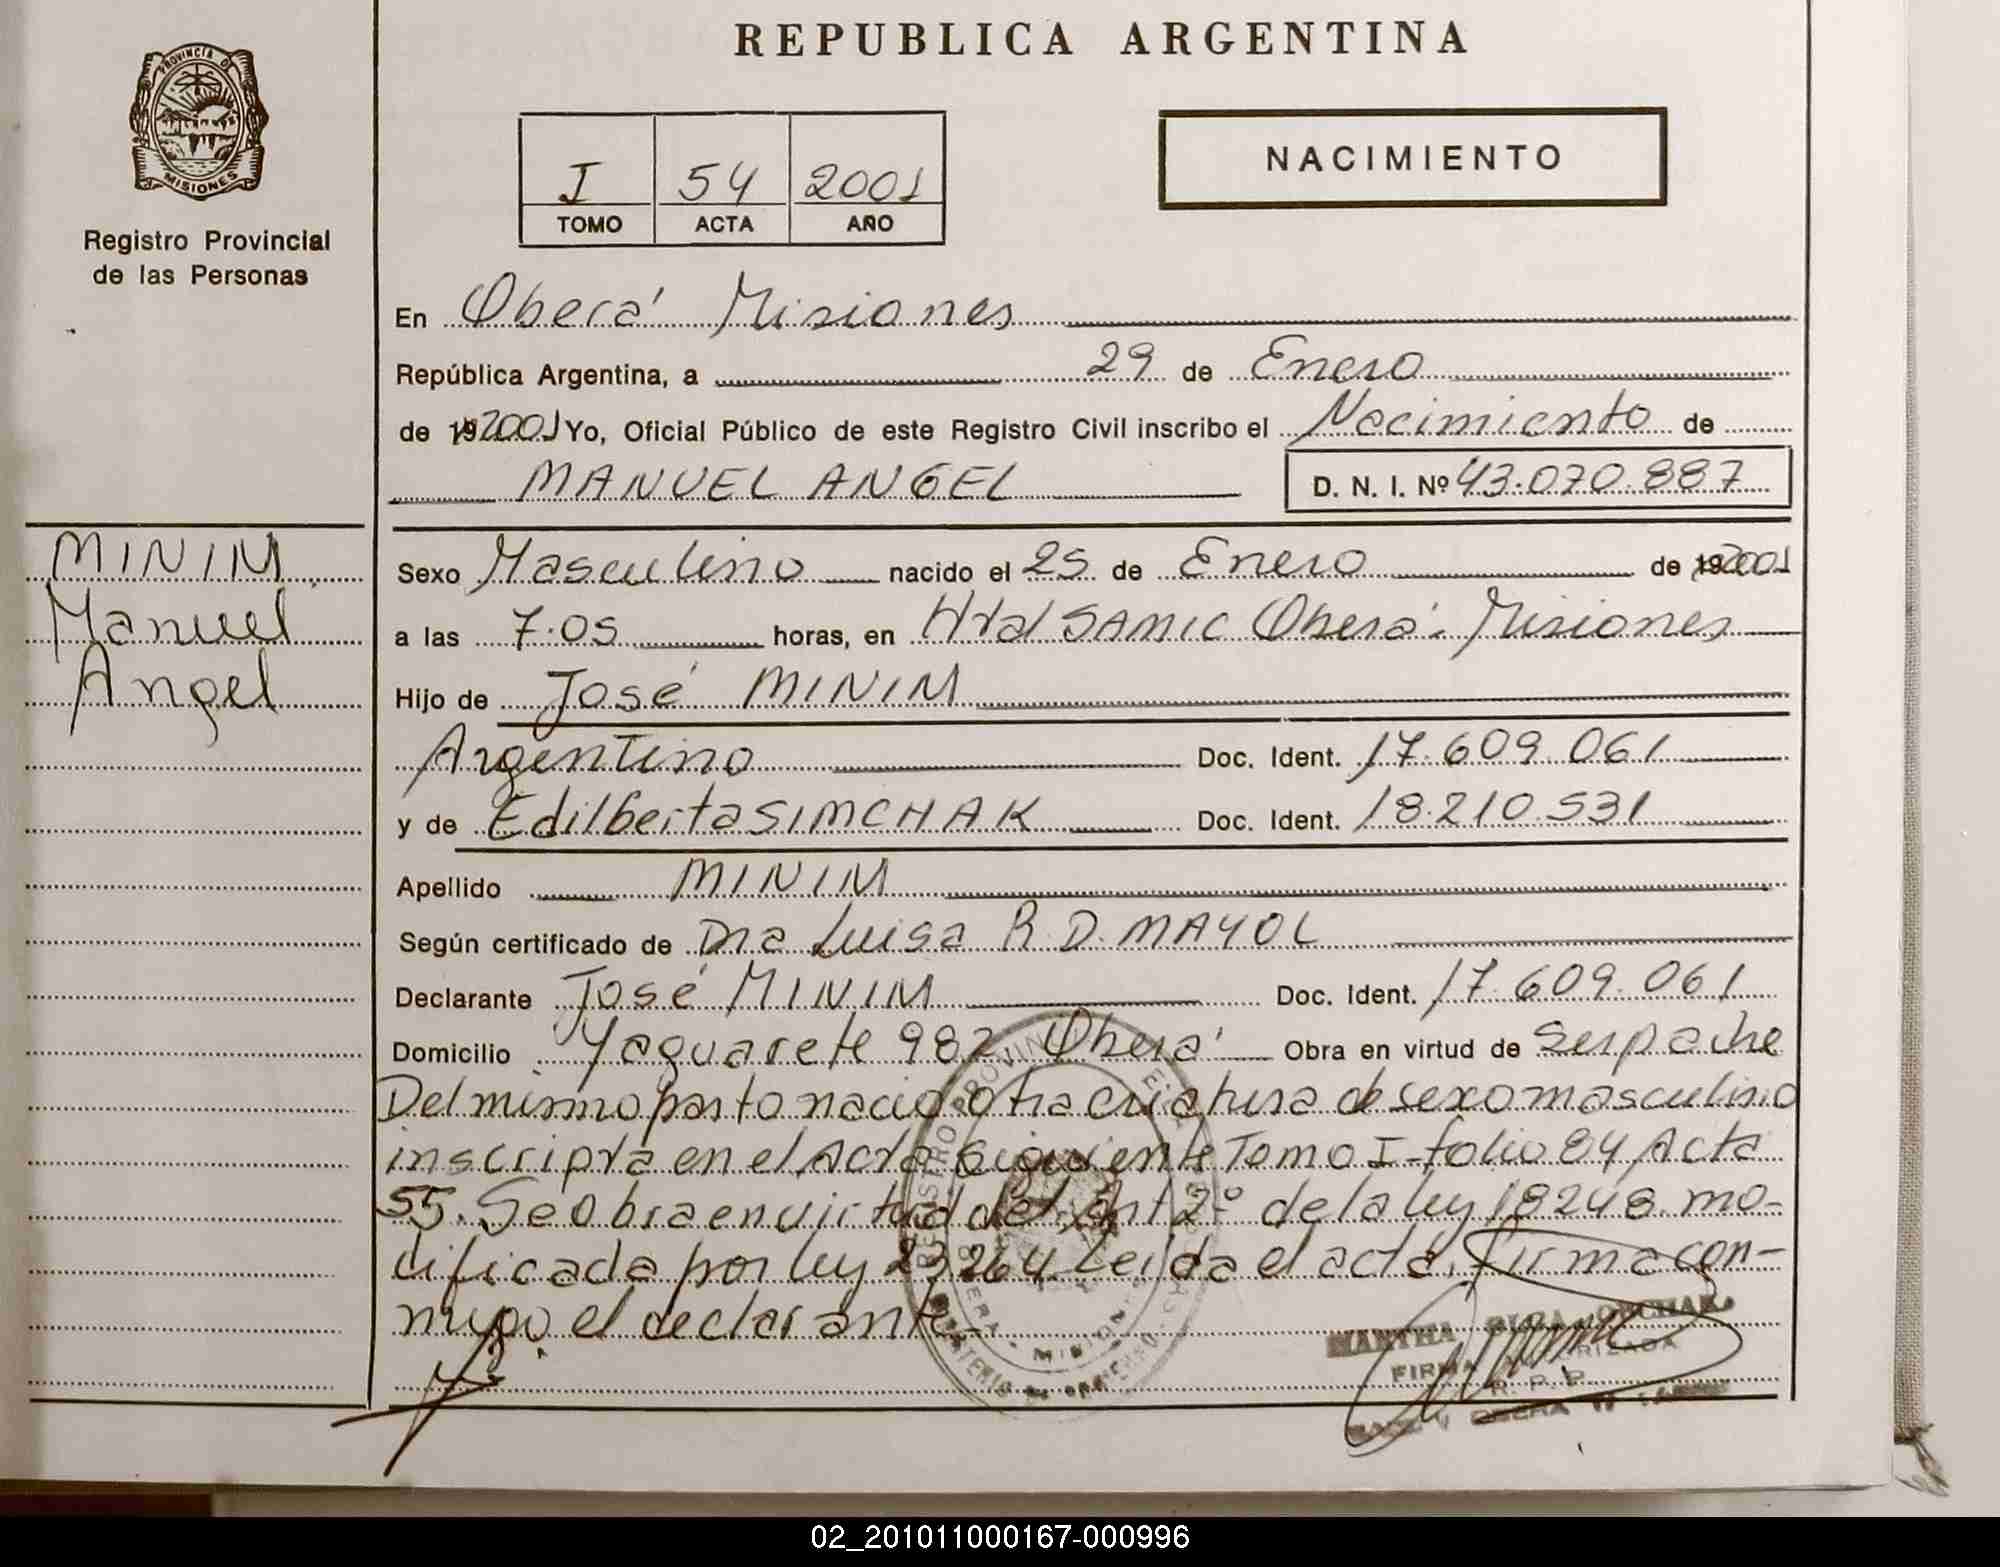 REPUBLICA ARGENTINA
PROVINCIA DE MISIONES
Registro Provincial
de las Personas
I 54 2001
TOMO ACTA AÑO
NACIMIENTO
En Oberá Misiones
República Argentina, a 29 de Enero
de 192001 Yo, Oficial Público de este Registro Civil inscribo el Nacimiento de
MANUEL ANGEL D. N. I. Nº 43.070.887
MINIM
Manuel
Angel
Sexo Masculino nacido el 25 de Enero de 192001
a las 7.05 horas, en Htal SAMIC Oberá. Misiones
Hijo de José MINIM
Argentino Doc. Ident. 17.609.061
y de Edilberta SIMCHAK Doc. Ident. 18.210.531
Apellido MINIM
Según certificado de Dra Luisa R.D. MAYOL
Declarante José MINIM Doc. Ident. 17.609.061
Domicilio Yaguarete 982 Oberá Obra en virtud de ser padre
Del mismo parto nacio otra criatura de sexo masculino
inscripta en el Acta siguiente Tomo I-folio 84 Acta
55. Se obra en virtud del Art 2º de la ley 18248 mo-
dificada por ley 23264. Leída el acta, firma con-
migo el declarante.-
MARTHA OLGA
FIRMA AUTORIZADA
R. P. P.
02_201011000167-000996